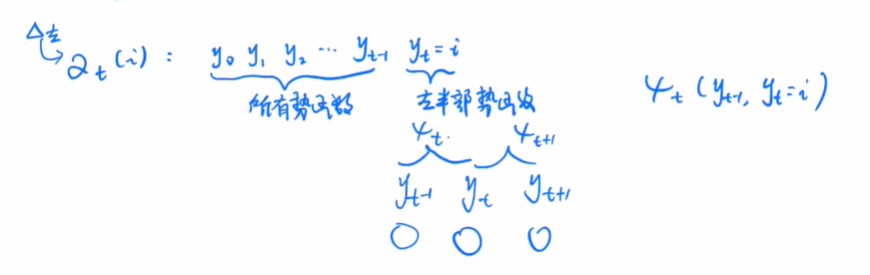 Δ左
α_t(i): y_0 y_1 y_2 ⋯ y_{t-1} y_t=i
所有势函数 左半部势函数 ψ_t(y_{t-1}, y_t=i)
ψ_t. ψ_{t+1}
y_{t-1} y_t y_{t+1}